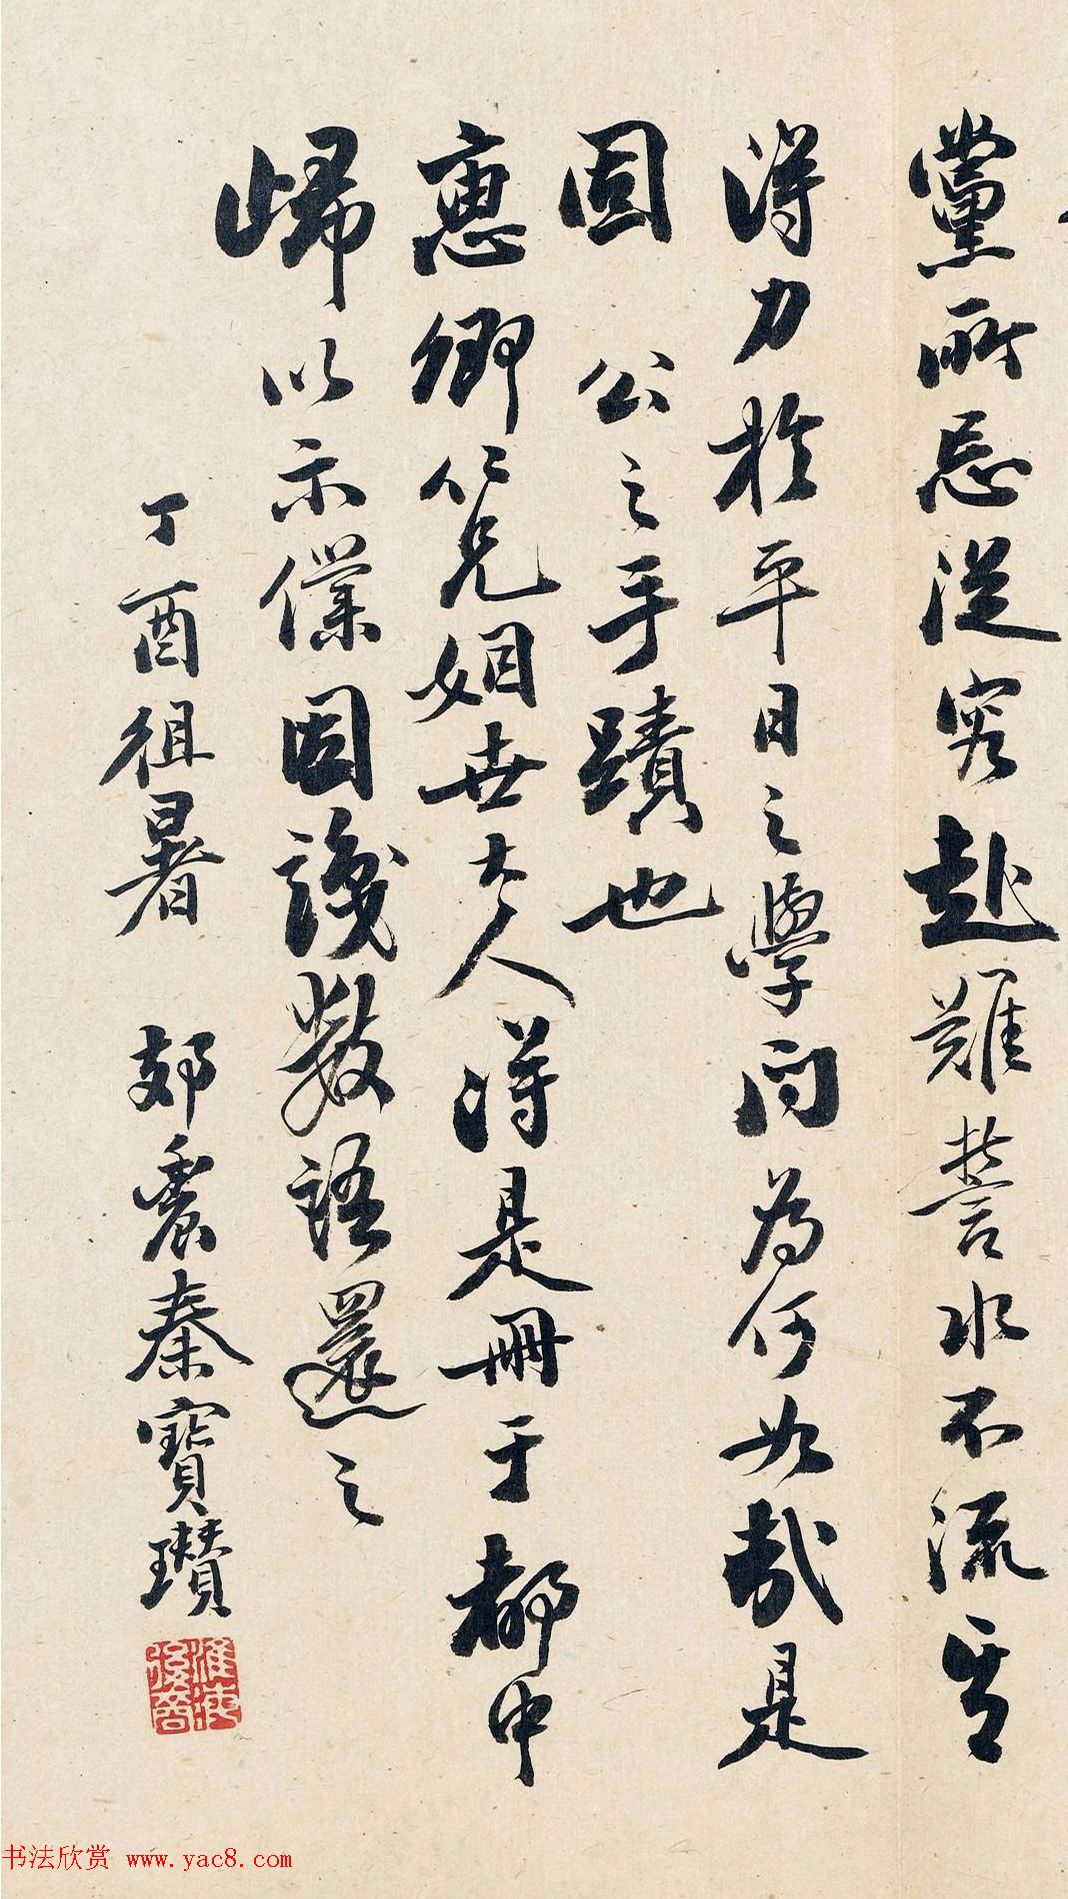 黨所忌從容赴難誓水不流其
得力於平日之學問為何如哉是
固公之手蹟也
惠卿仁兄姻世大人得是冊于都中
歸以示僕因識數語還之
丁酉徂暑 𨙸農秦寶瓚
淮海後裔
书法欣赏 www.yac8.com